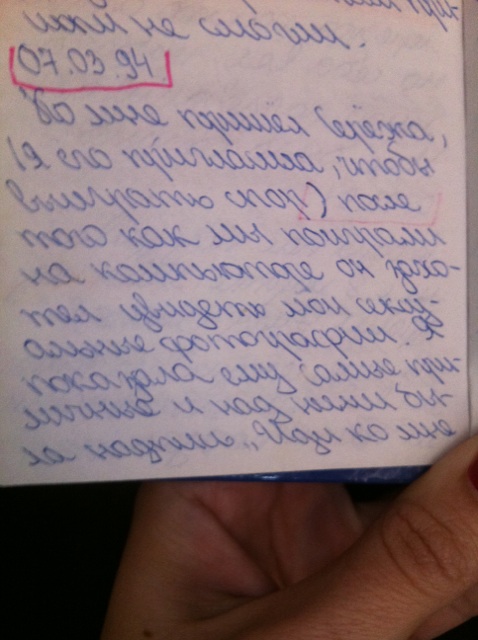 жки не смогли.
07.03.94
Ко мне пришёл Серёжа,
(я его пригласила, чтобы
выиграть спор) после
того как мы поиграли
на компьютере он захо-
тел увидеть мои сексу-
альные фотографии. Я
показала ему самые при-
личные и над ними бы-
ла надпись „Иди ко мне